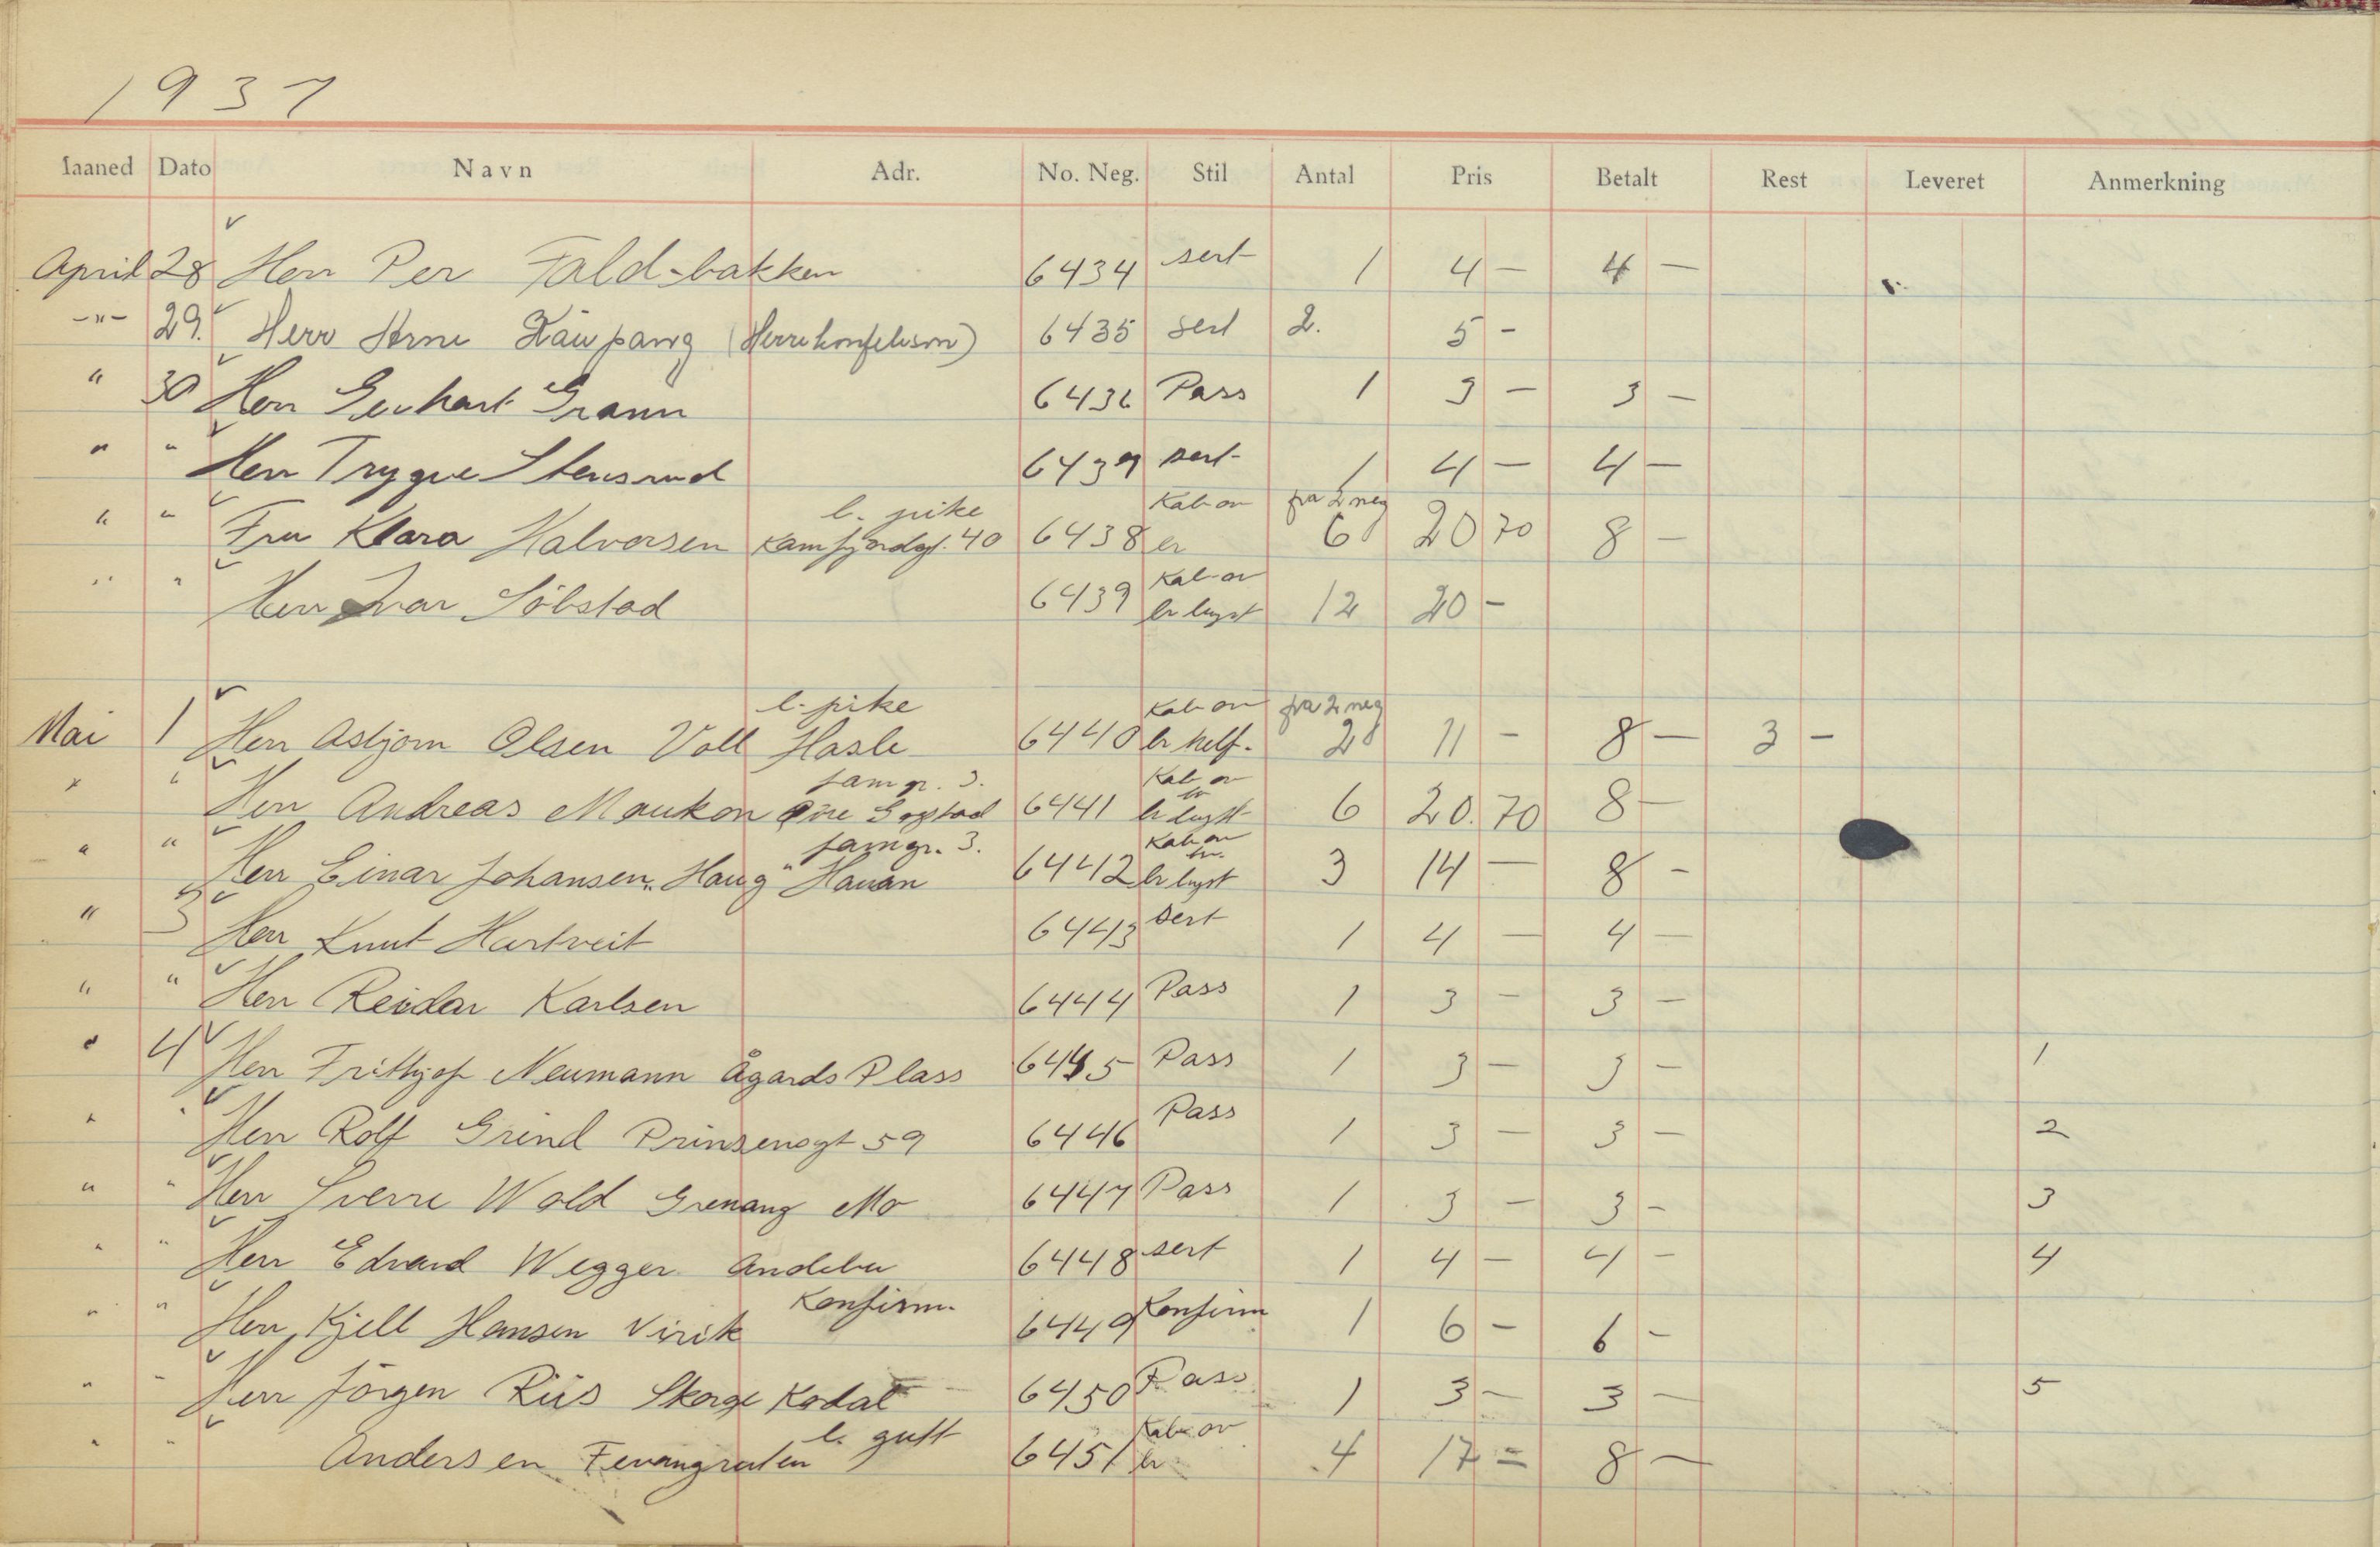 1937
Maaned Dato Navn Adr. No. Neg. Stil Antal Pris Betalt Rest Leveret Anmerkning
April 28 Herr Per Fald-bakken 6434 sert 1 4 — 4 —
-"- 29. Herr Arne Kaupang (Herrekonfeksion) 6435 sert 2. 5 -
" 30 Herr Gerhart Grann 6436 Pass 1 3 — 3 —
" " Herr Trygve Stensrud 6437 sert- 1 4 — 4 —
l. pike Kab ov fra 2 neg
" " Fru Klara Halvorsen Kamfjordgt. 40 6438 er 6 20 70 8 —
Kab ov
" " Herr Ivar Söbstad 6439 br lyst 12 20 -
l. pike Kab ov fra 2 neg
Mai 1 Herr Asbjørn Olsen Voll Hasle 6440 br helf. 2 11 - 8 — 3 —
fam gr. 3. Kab ov
" " Herr Andreas Maukon Øvre Gogstad 6441 br lyst 6 20. 70 8 —
fam gr. 3. Kab ov
" " Herr Einar Johansen "Haug" Hauan 6442 br lyst 3 14 — 8 -
" 3 Herr Knut Hartveit 6443 sert 1 4 — 4 —
" " Herr Reidar Karlsen 6444 Pass 1 3 - 3 —
" 4 Herr Frithjof Neumann Ågards Plass 6445 Pass 1 3 — 3 — 1
" " Herr Rolf Grind Prinsensgt 59 6446 Pass 1 3 — 3 — 2
" " Herr Sverre Wold Grenang Mo 6447 Pass 1 3 — 3 - 3
" " Herr Edvard Wegger Andebu 6448 sert 1 4 — 4 — 4
Konfirm.
" " Herr Kjell Hansen Virik 6449 Konfirm 1 6 — 6 -
" " Herr Jörgen Riis Skorge Kodal 6450 Pass 1 3 — 3 — 5
l. gutt Kab ov
" " Andersen Fevangraten 6451 br 4 17 = 8 —